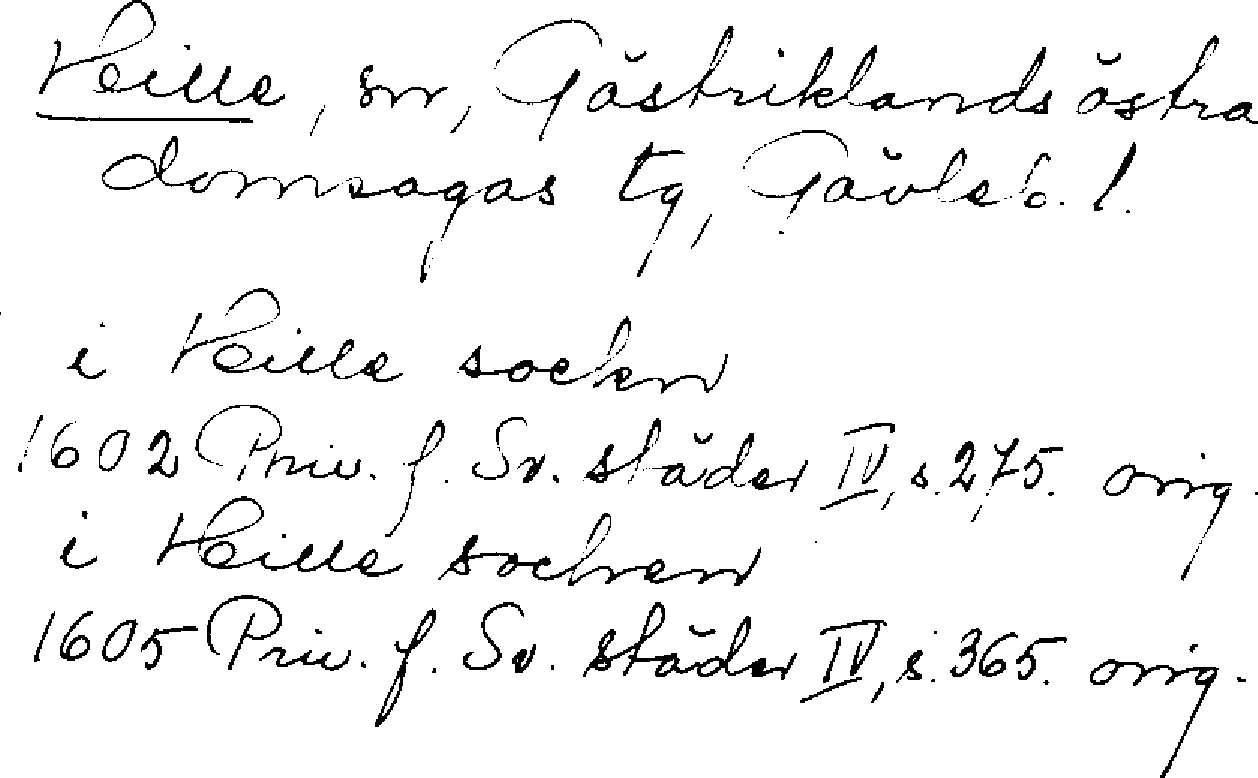 Hille, sn, Gästriklands östra
domsagas tg, Gävleb. l.
i Hille socken
1602 Priv. f. Sv. städer IV, s. 275. orig.
i Hille sochnen
1605 Priv. f. Sv. städer IV, s. 365. orig.